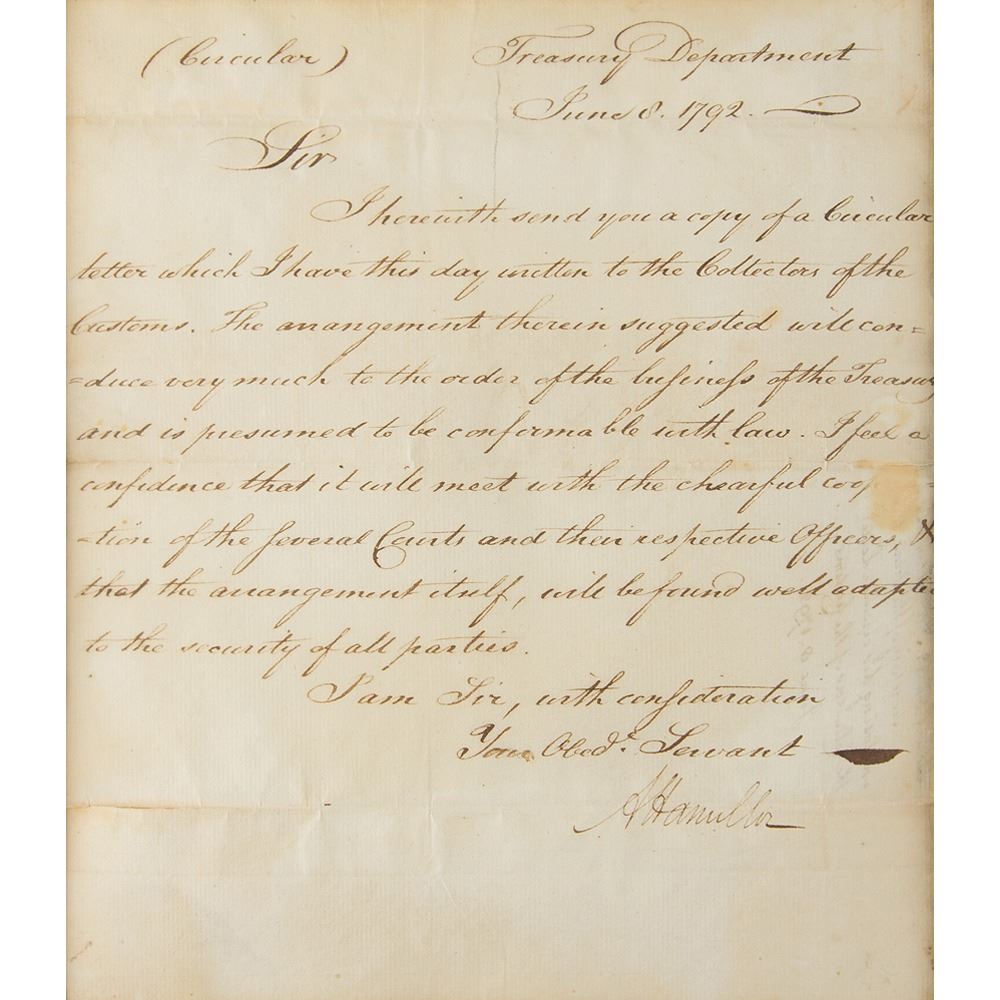 (Circular) Treasury Department
June 8. 1792.
Sir
I herewith send you a copy of a Circular
letter which I have this day written to the Collectors of the
Customs. The arrangement therein suggested will con=
=duce very much to the order of the busineſs of the Treasury
and is presumed to be conformable with law. I feel a
confidence that it will meet with the chearful coop
=tion of the several Courts and their respective Officers, &
that the arrangement itself, will be found well adapted
to the security of all parties.
I am Sir, with consideration
Your Obedt. Servant
A Hamilton